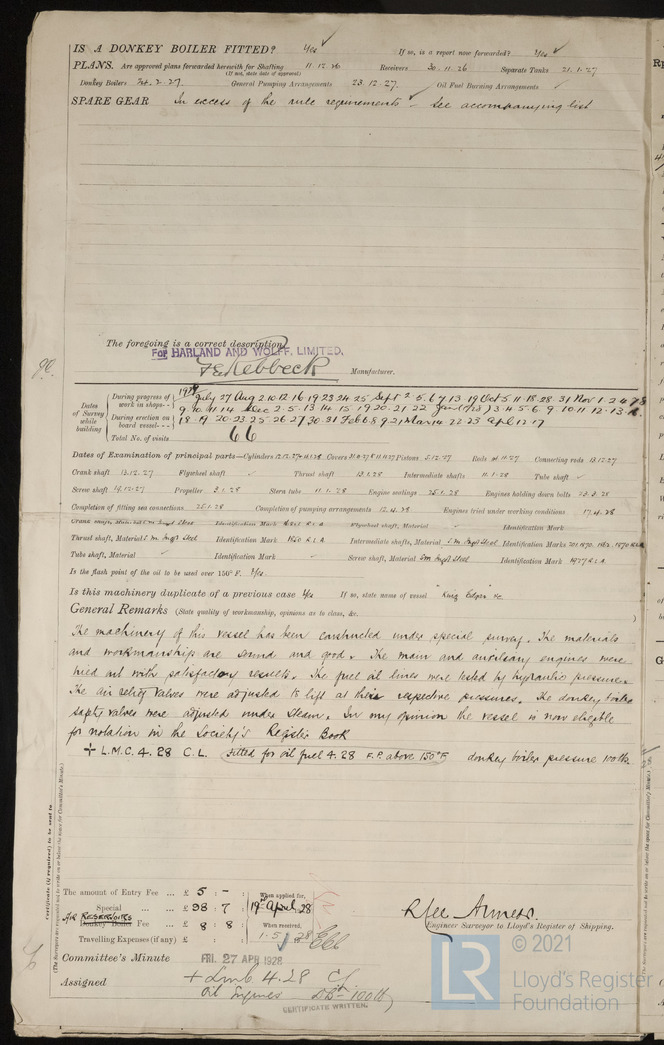 IS A DONKEY BOILER FITTED? Yes ✓ If so, is a report now forwarded? Yes ✓
PLANS. Are approved plans forwarded herewith for Shafting 11.12.26 Receivers 30.11.26 Separate Tanks 21.1.27
(If not, state date of approval)
Donkey Boilers 2.27. General Pumping Arrangements 23.12.27. Oil Fuel Burning Arrangements ✓
SPARE GEAR In excess of the rule requirements - See accompanying list
The foregoing is a correct description,
For HARLAND AND WOLFF. LIMITED.
F E Rebbeck Manufacturer.
Dates of Survey while building
During progress of work in shops - - July 27 Aug 2 10 12 16 19 23 24 25 Sept 2 5 6 7 13 19 Oct 5 11 18 28 31 Nov 1 2 4 7 8
9 10 11 14 Dec 2 5 13 14 15 19 20 21 22 Jan (1928) 3 4 5 6 9 10 11 12 13
During erection on board vessel - - - 18 19 20 23 25 26 27 30 31 Feb 6 8 9 21 Mar 14 22 23 Apl 12 17
Total No. of visits 66
Dates of Examination of principal parts—Cylinders Covers Pistons 5.12.27 Rods Connecting rods 13.12.27
Crank shaft 13.12.27 Flywheel shaft ✓ Thrust shaft 13.1.28 Intermediate shafts 11.1.28 Tube shaft ✓
Screw shaft 14.12.27 Propeller 3.1.28 Stern tube 11.1.28 Engine seatings 25.1.28 Engines holding down bolts 23.3.28
Completion of fitting sea connections 25.1.28 Completion of pumping arrangements 12.4.28 Engines tried under working conditions 17.4.28
Crank shaft, Material S.M. Ingot Steel Identification Mark R.L.A Flywheel shaft, Material ✓ Identification Mark
Thrust shaft, Material S.M. Ingot Steel Identification Mark 1850 R.L.A Intermediate shafts, Material S.M. Ingot Steel Identification Marks
Tube shaft, Material ✓ Identification Mark ✓ Screw shaft, Material S.M. Ingot Steel Identification Mark 1877 R.L.A.
Is the flash point of the oil to be used over 150° F. Yes.
Is this machinery duplicate of a previous case Yes If so, state name of vessel "King Edgar" &c
General Remarks (State quality of workmanship, opinions as to class, &c.
The machinery of this vessel has been constructed under special survey. The materials
and workmanship are sound and good. The main and auxiliary engines were
tried out with satisfactory results. The fuel oil lines were tested by hydraulic pressure.
The air relief valves were adjusted to lift at their respective pressures. The donkey boiler
safety valves were adjusted under steam. In my opinion the vessel is now eligible
for notation in the Society's Register Book
+ L.M.C. 4.28 C.L. (Fitted for oil fuel 4.28 F.P. above 150°F) donkey boiler pressure 100 lb.
Certificate (if required) to be sent to
(The Surveyors are requested not to write on or below the space for Committee's Minute.)
The amount of Entry Fee ... £ 5 : - : When applied for,
Special ... ... £ 98 : 7 : 19th April 28
Air Reservoirs
Donkey Boiler Fee ... £ 8 : 8 : When received,
Travelling Expenses (if any) £ : : 1.5.28
Engineer Surveyor to Lloyd's Register of Shipping.
Committee's Minute FRI. 27 APR 1928
Assigned + LMC 4.28 CL
Oil Engines DB - 100 lb
CERTIFICATE WRITTEN.
LR
© 2021
Lloyd's Register
Foundation